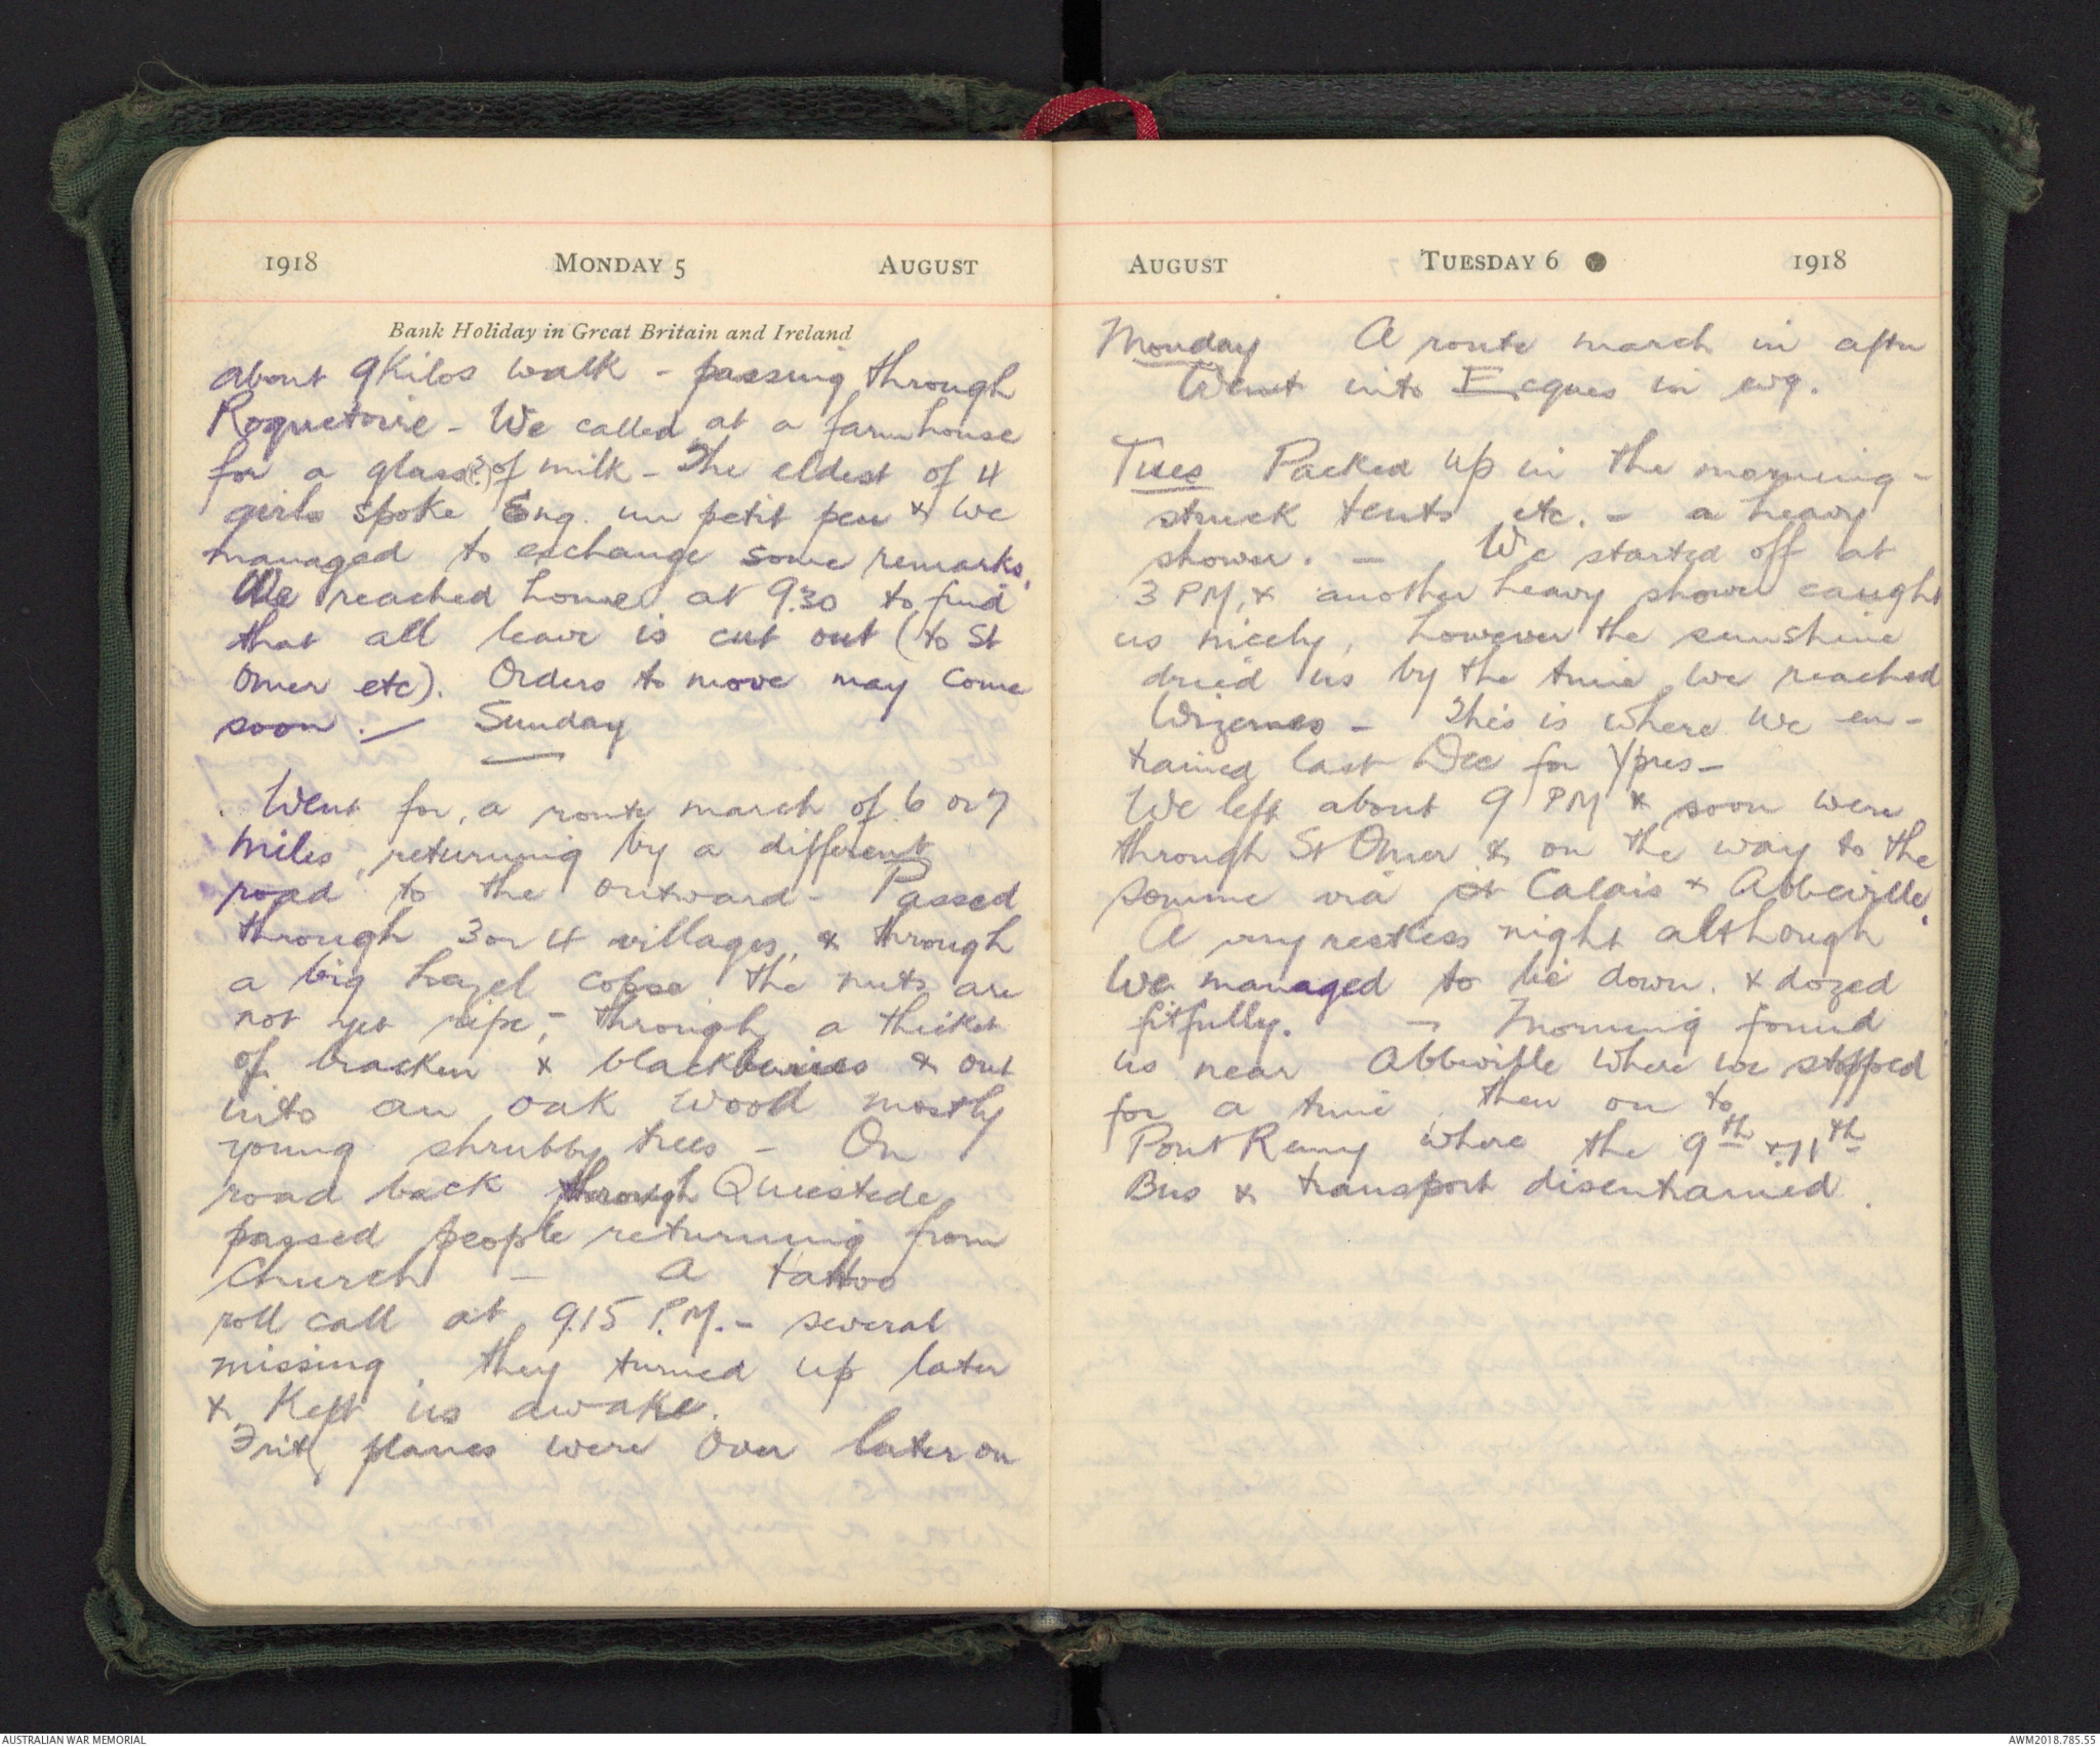 1918 MONDAY 5 AUGUST
Bank Holiday in Great Britain and Ireland
about 9 Kilos walk - passing through
Roquetoire - We called at a farmhouse
for a glass(?) of milk - The eldest of 4
girls spoke Eng. un petit peu & we
managed to exchange some remarks.
We reached home at 9.30 to find
that all leave is cut out (to St
Omer etc). Orders to move may come
soon. - Sunday
Went for a route march of 6 or 7
miles, returning by a different
road to the outward - Passed
through 3 or 4 villages, & through
a big hazel copse the nuts are
not yet ripe, - through a thicket
of bracken & blackberries & out
into an oak wood mostly
young shrubby trees - On
road back through Quiestede
passed people returning from
Church - A tattoo
roll call at 9.15 P.M. - several
missing, they turned up later
& kept us awake.
Fritz planes were over later on
AUGUST TUESDAY 6 1918
Monday A route march in aftn
Went into Ecques in evg.
Tues Packed up in the morning -
struck tents etc. - a heavy
shower. - We started off at
3 PM, & another heavy shower caught
us nicely, however the sunshine
dried us by the time we reached
Wizernes - This is where we en-
trained last Dec for Ypres -
We left about 9 PM & soon were
through St Omer & on the way to the
Somme via Calais & Abbeville.
A very restless night although
we managed to lie down. & dozed
fitfully. - Morning found
us near Abbeville where we stopped
for a time, then on to
Pont Remy where the 9th & 11th
Bns & transport disentrained.
AUSTRALIAN WAR MEMORIAL
AWM2018.785.55